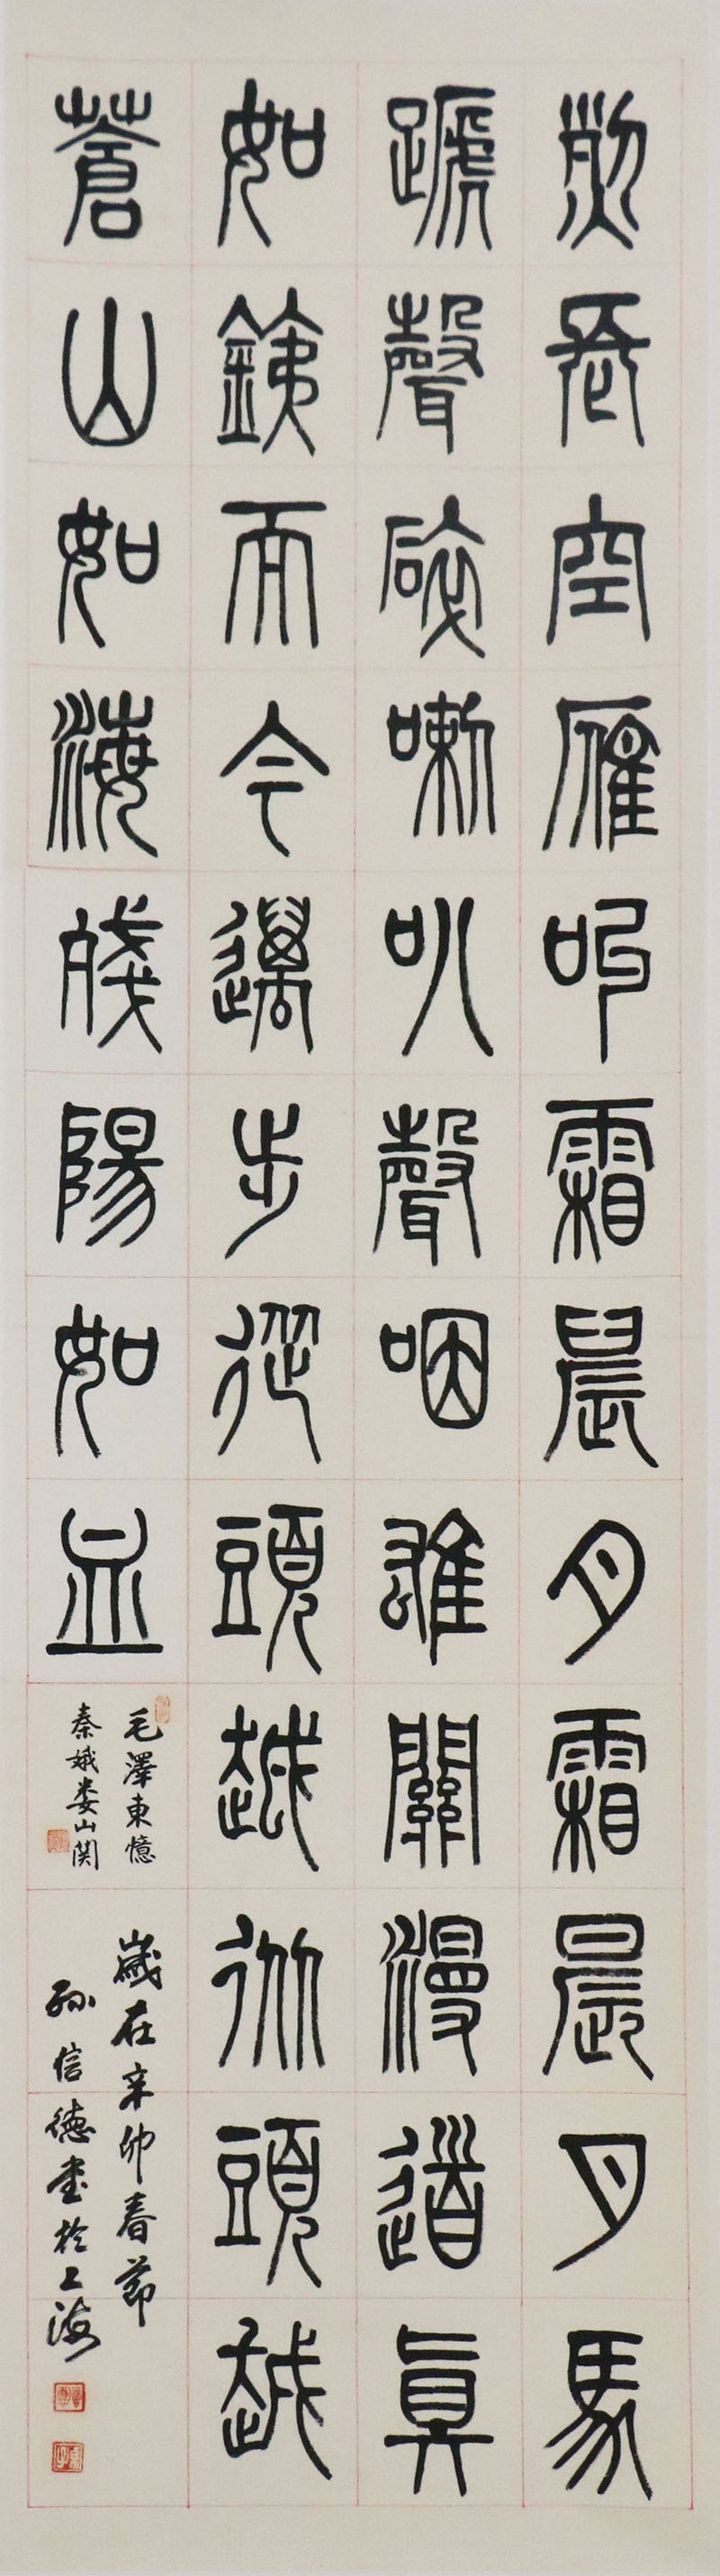 烈長空雁叫霜晨月霜晨月馬
蹏聲碎喇叭聲咽雄關漫道真
如銕而今邁步從頭越從頭越
蒼山如海殘陽如血
毛澤東憶
秦娥娄山関
歲在辛卯春節
孫信德書於上海